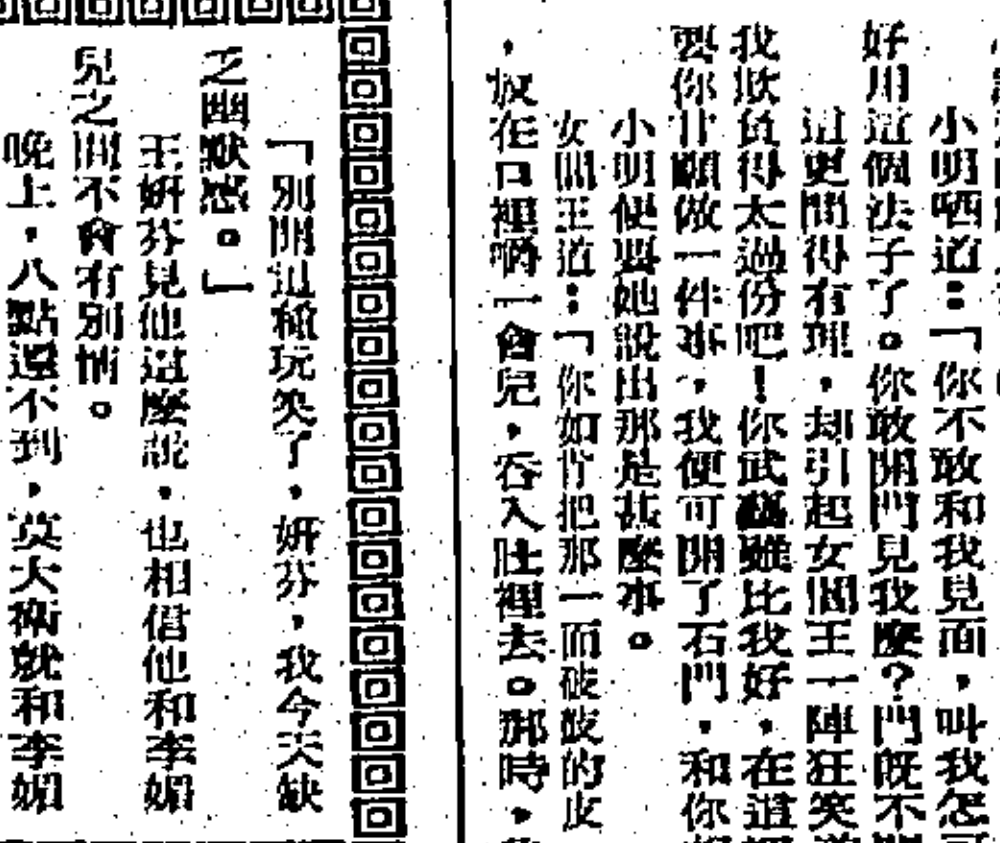 小明哂道：「你不敢和我見面，叫我怎
好用這個法子了。你敢開門見我麼？門既不
這更問得有理，却引起女閻王一陣狂笑
我欺負得太過份吧！你武藝雖比我好，在這
要你甘願做一件事，我便可開了石門，和你
小明便要她說出那是甚麼事。
女閻王道：「你如肯把那一面破鼓的皮
，放在口裡嚼一會兒，吞入肚裡去。那時，
「別開這種玩笑了，妍芬，我今天缺
乏幽默感。」
王妍芬見他這麼說，也相信他和李媚
兒之間不會有別情。
晚上，八點還不到，莫大衛就和李媚